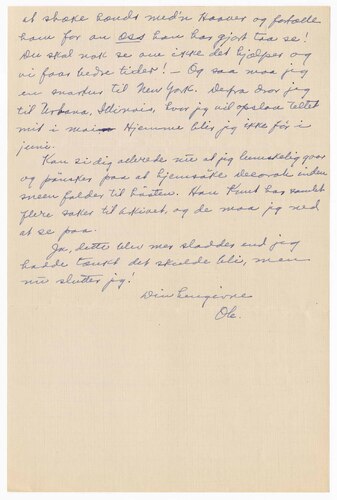 at shake hands med'n Hoover og fortælle
ham for en oss han har gjort taa se!
Du skal nok se om ikke det hjælper og
vi faar bedre tider! – Og saa maa jeg
en snartur til New York. Derfra drar jeg
til Urbana, Illinois, hvor jeg vil opslaa teltet
mit i mai. Hjemme blir jeg ikke før i
juni.
Kan si dig allerede nu at jeg lumskelig gaar
og pønsker paa at hjemsøke Decorah inden
sneen falder til høsten. Han Knut har samlet
flere saker til arkivet, og de maa jeg ned
at se paa.
Ja, dette blev mer sladder end jeg
hadde tænkt det skulde bli, men
nu slutter jeg!
Din hengivne
Ole.